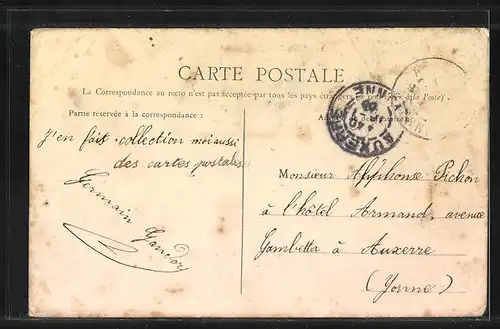 CARTE POSTALE
La Correspondance au recto n'est pas acceptée par tous les pays étrangers (se renseigner à la Poste).
Partie réservée à la correspondance :
J'en fait collection moi aussi
des cartes postales
Germain
Monsieur Alphonse Pichon
à l'hôtel Armand, avenue
Gambetta à Auxerre
(Yonne)
AUXERRE
YONNE